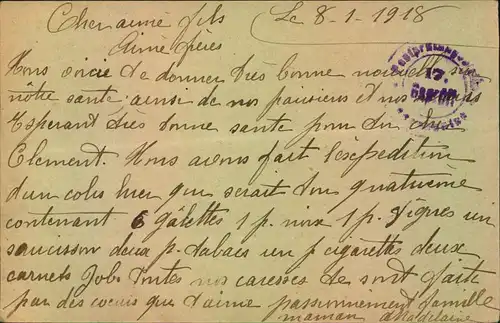 Cher aimé fils Le 8-1-1918
Aimé frères
Nous voici de donner très bonne nouvelle sur
nôtre santé ainsi de nos parsiens et nos
Esperant très bonne sante pour du cher
Clement. Nous avons fait l'éxpedition
d'un colis hier qui serait ton quatrieme
contenant 6 galettes 1 p. noix 1 p. figues un
saucisson deux p. tabacs un p cigarettes deux
carnets Job. toutes nos caresses de sont faite
par des coeurs qui t'aime passionnement famille
maman Madelaine
17.